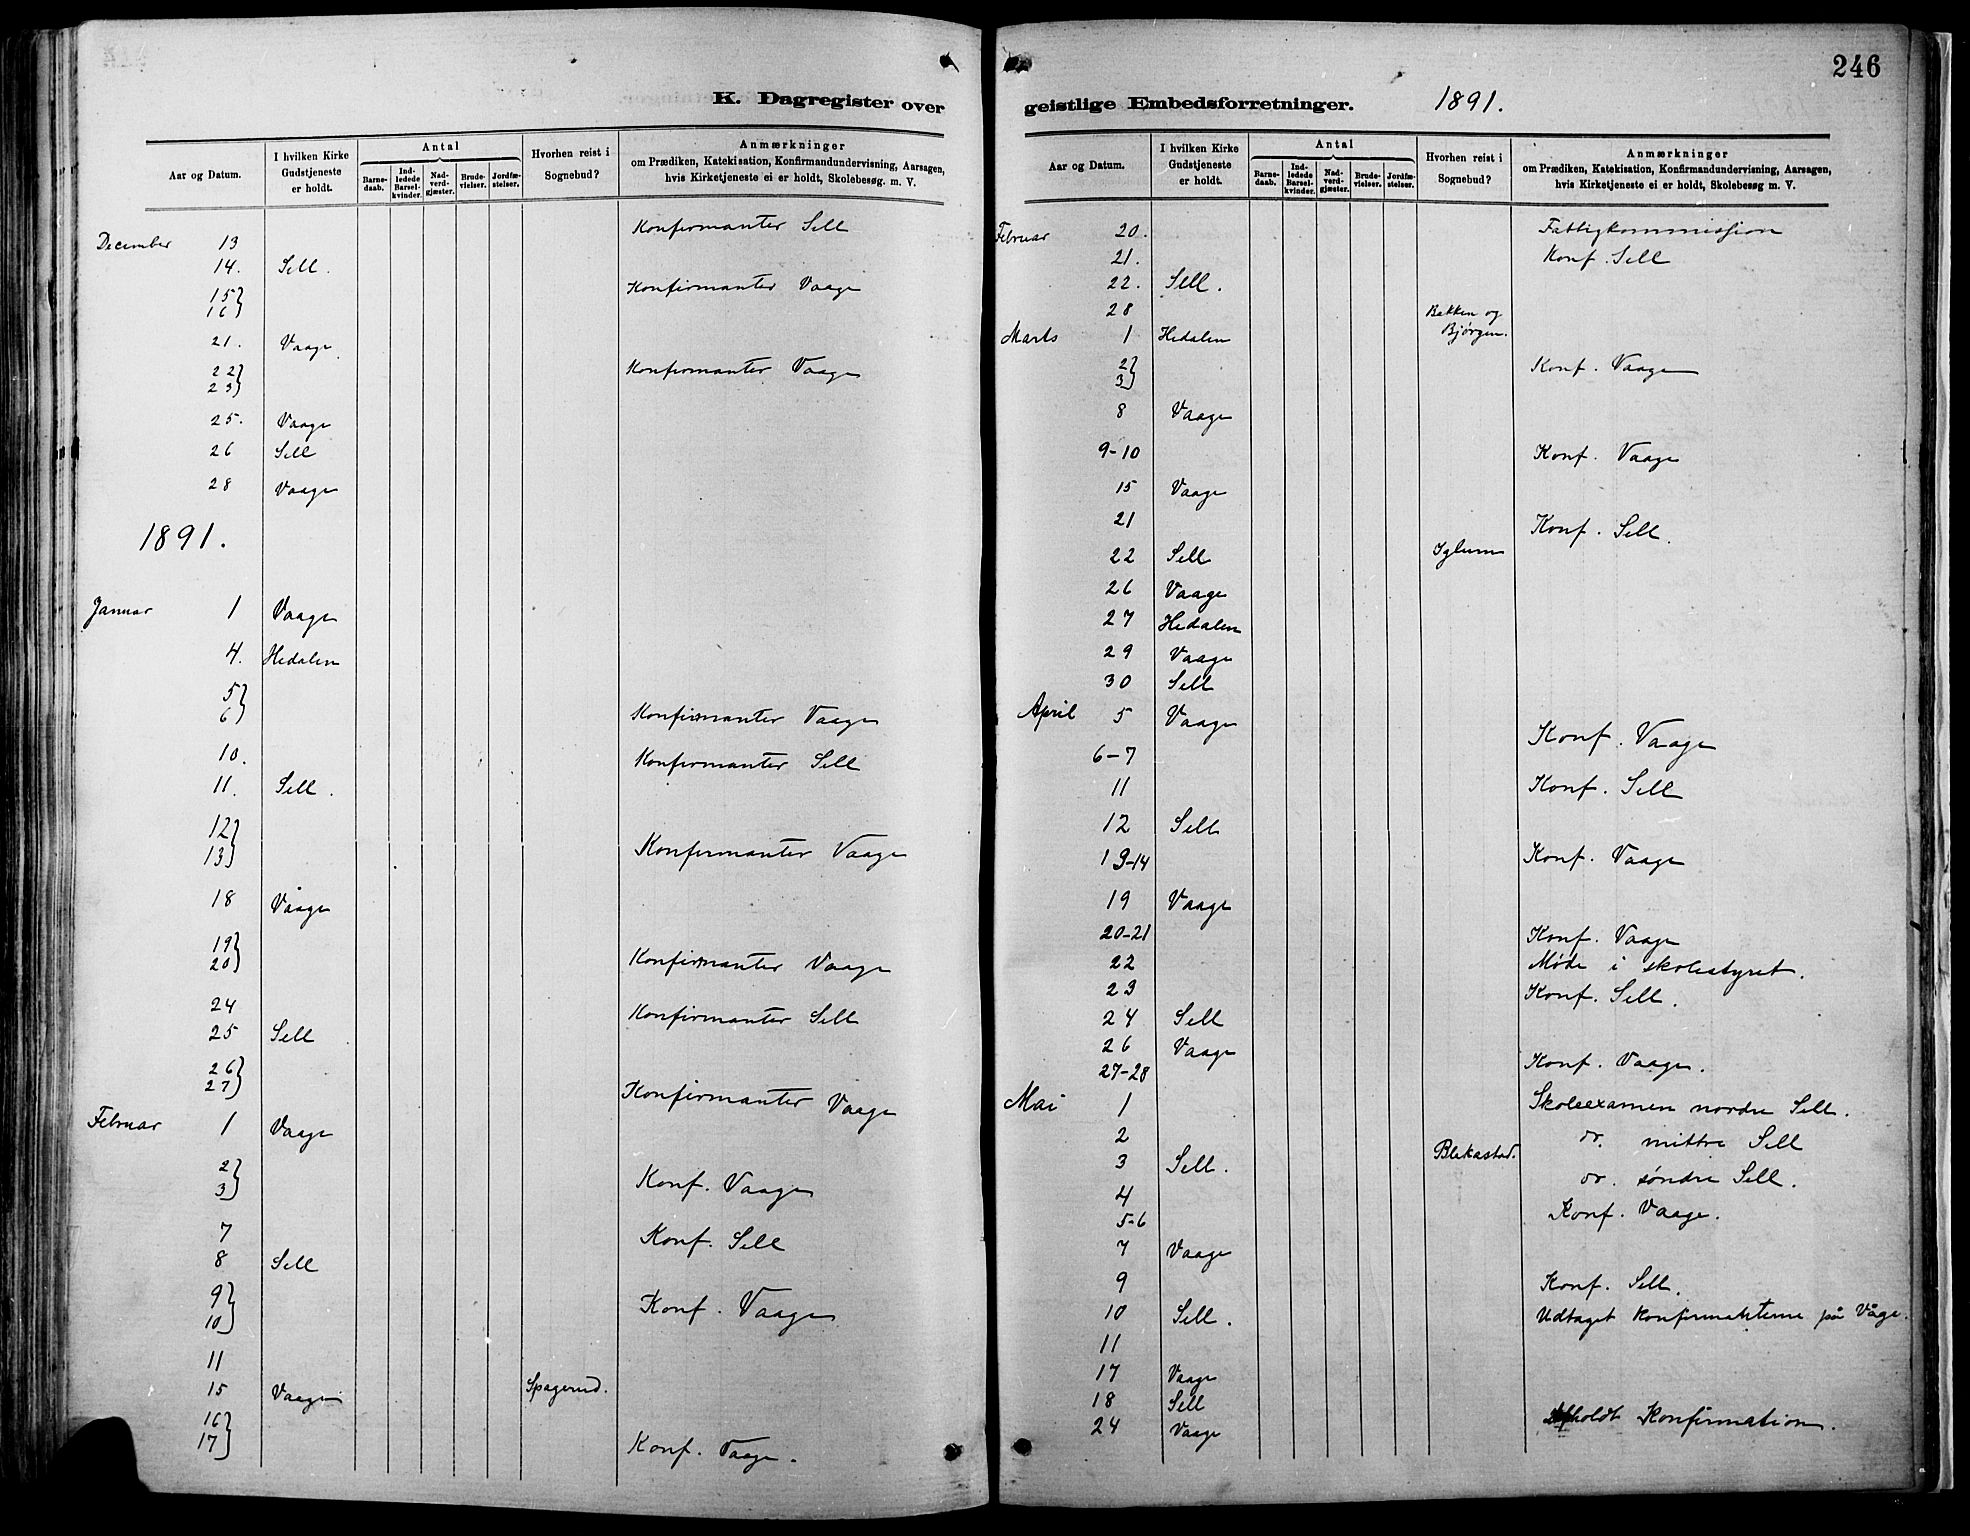 K. Dagregister over
Aar og Datum.
I hvilken Kirke Gudstjeneste er holdt.
Antal
Barne-daab.
Ind-ledede Barsel-kvinder.
Nad-verd-gjæster.
Brude-vielser.
Jordfæ-stelser.
Hvorhen reist i Sognebud?
Anmærkninger
om Prædiken, Katekisation, Konfirmandundervisning, Aarsagen,
hvis Kirketjeneste ei er holdt, Skolebesøg. m. V.
December 13 Konfirmanter Sell
14. Sell.
15 } Konfirmanter Vaage
16 }
21. Vaage
22 } Konfirmanter Vaage
23 }
25. Vaage
26 Sell
28 Vaage
1891.
Januar 1 Vaage
4. Hedalen
5 }
6 } Konfirmanter Vaage
10. Konfirmanter Sell
11. Sell.
12 }
13 } Konfirmanter Vaage
18 Våage
19 }
20 } Konfirmanter Vaage
24 Konfirmanter Sell
25 Sell
26 }
27 } Konfirmanter Vaage
Februar 1 Vaage
2 }
3 } Konf. Vaage
7 Konf. Sell
8 Sell
9 }
10 } Konf. Vaage
11
15 Vaage Spagerud.
16 }
17 } Konf. Vaage.
246
geistlige Embedsforretninger. 1891.
Aar og Datum.
I hvilken Kirke Gudstjeneste er holdt.
Antal
Barne-daab.
Ind-ledede Barsel-kvinder.
Nad-verd-gjæster.
Brude-vielser.
Jordfæ-stelser.
Hvorhen reist i Sognebud?
Anmærkninger
om Prædiken, Katekisation, Konfirmandundervisning, Aarsagen,
hvis Kirketjeneste ei er holdt, Skolebesøg m. V.
Februar 20. Fattigkommission
21. Konf. Sell
22. Sell.
28 Bakken og
Marts 1 Hedalen Bjørgen.
2 } Konf. Vaage
3 }
8 Vaage
9-10 Konf. Vaage
15 Vaage
21 Konf. Sell.
22 Sell
26 Vaage
27 Hedalen
29 Vaage
30 Sell
April 5 Vaage
6-7 Konf. Vaage
11 Konf. Sell
12 Sell
13-14 Konf. Vaage
19 Vaage
20-21 Konf. Vaage
22 Møde i skolestyret.
23 Konf. Sell.
24 Sell
26 Vaage
27-28 Konf. Vaage.
Mai 1 Skoleexamen nordre Sell.
2 do. mittre Sell
3 Sell. Blekastad.
4 do. søndre Sell.
5-6 Konf. Vaage.
7 Vaage
9 Konf. Sell.
10 Sell. Udtaget konfirmanterne på Våge.
11
17 Vaage
18 Sell
24 Vaage Afholdt Konfirmation.